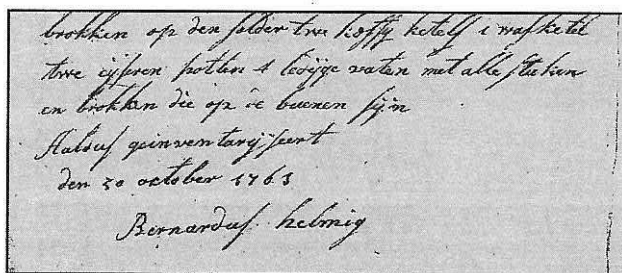 brokken op den solder twe koffy ketels 1 wasketel
twe eijseren potten 4 ledige vaten met alle stukken
en brokken die op de buenen sijn
Aaldus geinventariseert
den 30 october 1763
Bernardus helmig